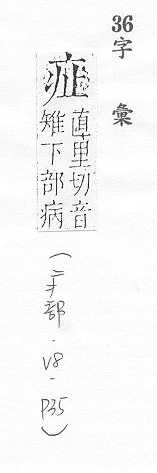 36字彙
直里切音
雉下部病
(疒部.V8.P35)